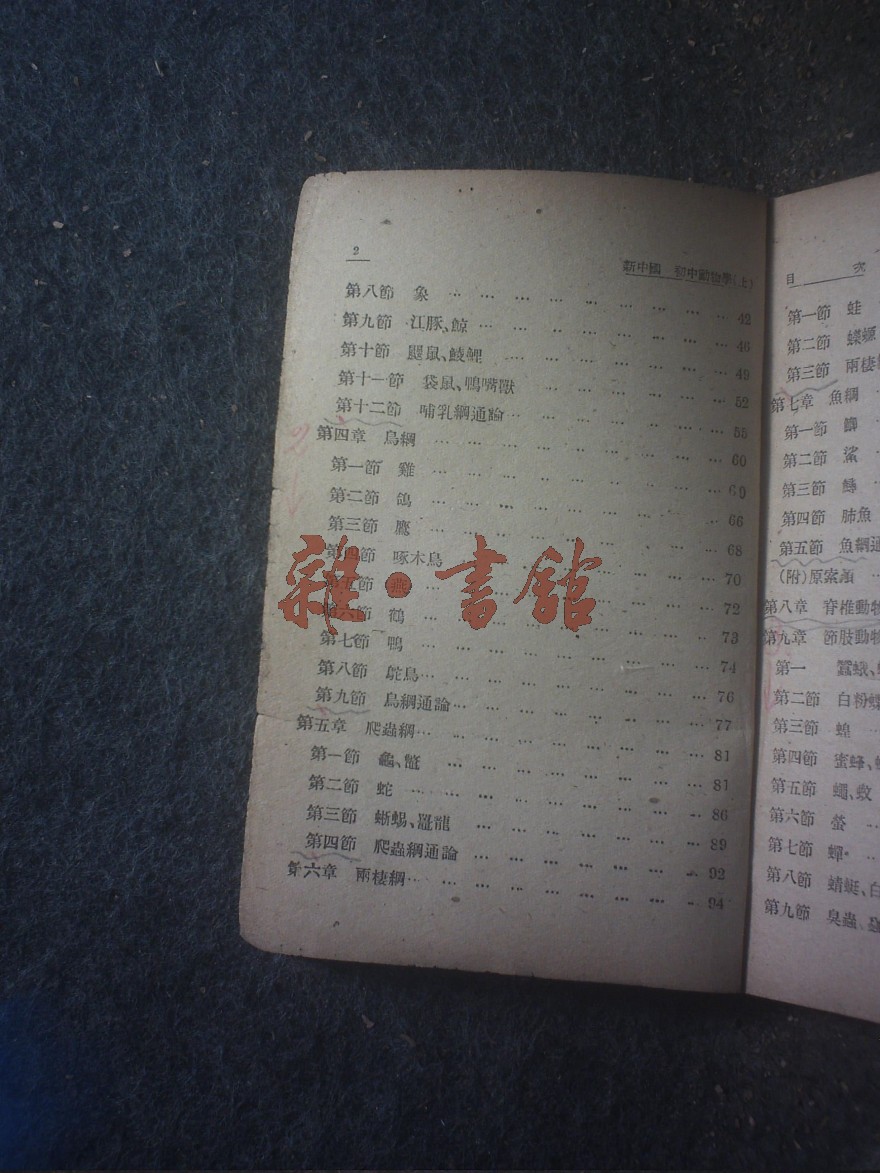 2
新中國 初中動物學(上)
第八節 象 … … … … … … … … 42
第九節 江豚、鯨 … … … … … … … 46
第十節 鼴鼠、鯪鯉 … … … … … … 49
第十一節 袋鼠、鴨嘴獸 … … … … … 52
第十二節 哺乳綱通論 … … … … … … 55
第四章 鳥綱 … … … … … … … … 60
第一節 雞 … … … … … … … … 60
第二節 鴿 … … … … … … … … 66
第三節 鷹 … … … … … … … … 68
第四節 啄木鳥 … … … … … … … 70
第五節 燕 … … … … … … … … 72
第六節 鶴 … … … … … … … … 73
第七節 鴨 … … … … … … … … 74
第八節 鴕鳥 … … … … … … … … 76
第九節 鳥綱通論 … … … … … … … 77
第五章 爬蟲綱 … … … … … … … … 81
第一節 龜、鼈 … … … … … … … … 81
第二節 蛇 … … … … … … … … 86
第三節 蜥蜴、鼉龍 … … … … … … 89
第四節 爬蟲綱通論 … … … … … … 92
第六章 兩棲綱 … … … … … … … … 94
雜·書館
目 次
第一節 蛙
第二節 蠑螈
第三節 兩棲
第七章 魚綱
第一節 鯽
第二節 鯊
第三節 鱘
第四節 肺魚
第五節 魚綱通
(附)原索類
第八章 脊椎動物
第九章 節肢動物
第一 蠶蛾、
第二節 白粉蝶
第三節 蝗
第四節 蜜蜂、
第五節 蠅、蚊
第六節 螢
第七節 蟬
第八節 蜻蜓、白
第九節 臭蟲、